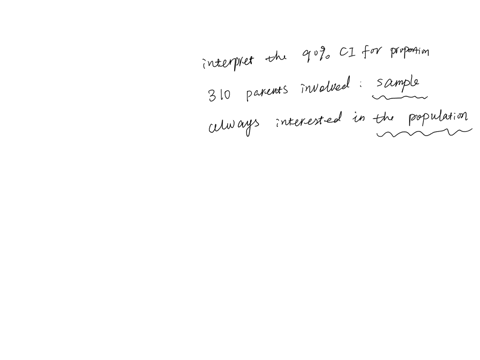 interpret the 90% CI for proportion
310 parents involved : sample
always interested in the population